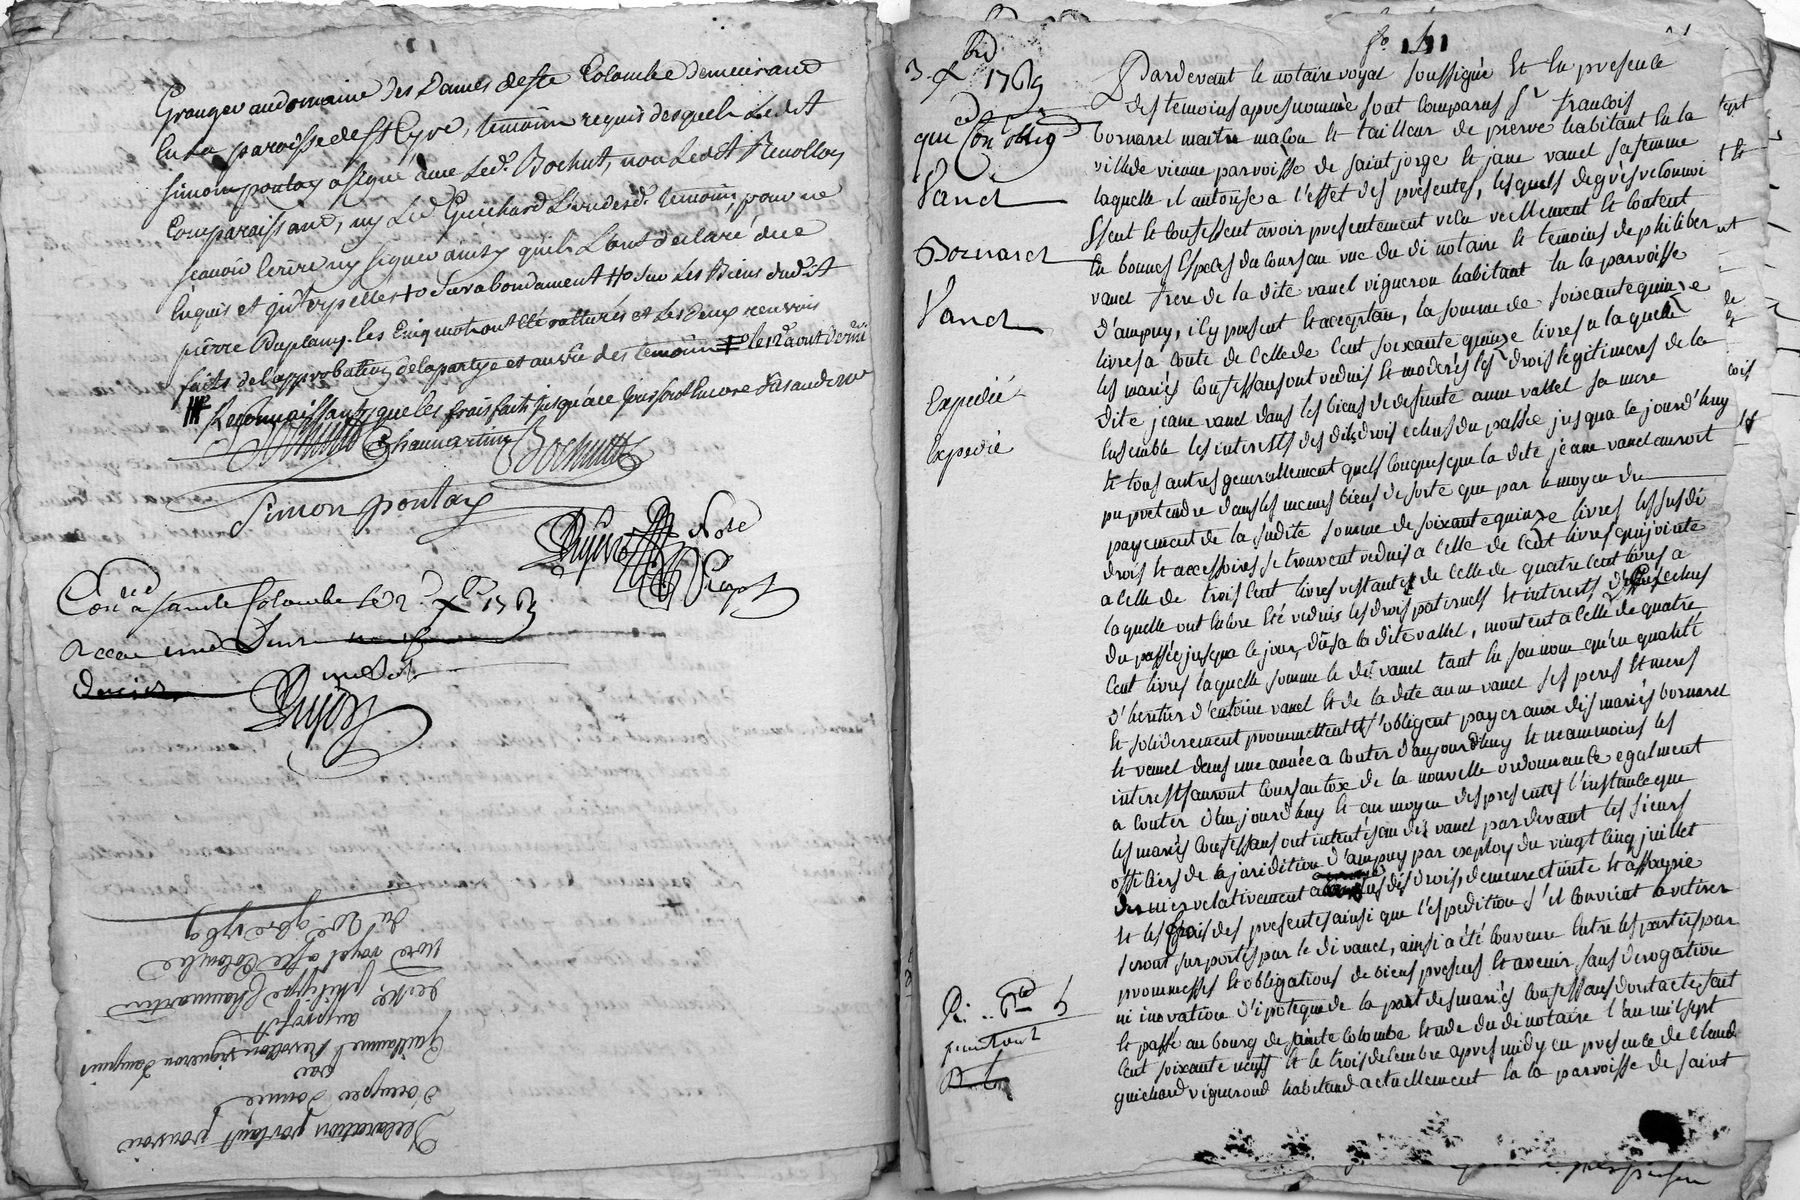 Granger au domaine des Dames de Ste Colombe demeurant
en la paroisse de St Cyre, temoins requis desquels Ledit
simon pontoy a signé avec Led. Bochut, non Ledit Revollon
Comparoissant, ny Led. Guichard L'un desd. temoins, pour ne
scavoir lecrire ny signer ainsy qu'ils L'ont declaré de ce
Enquis et interpellés to surabondament # sur Les Biens dudit
pierre Duplany. les cinq mots ont eté rattures et les deux renvois
faits de l'approbation de la partye et aussi des temoins # le 12 aout dernier
# Reconnaissant que les frais faits jusqu'a ce jour sont Encore
Chaumartin Bochutt
Simon pontoy
Dujers Note
Con.lé a sainte Colombe le 2. Xbre 1769
Reccu
Dujers
Declaration portant pouvoir
d'occuper donnée
par
Guillaume Revollon vigneron d'ampuis
au proffit
de sr. philippe Chaumartin
Nore. royal a Ste Colombe
du 20e. 9bre 1769
3. Xbre 1769
quce. Con oblig
Vanel
Bornarel
Vanel
Expedié
Expedié
Pardevant le notaire royal soussigné Et En presence
des temoins apres nommé sont comparus Sr francois
bornarel maitre maçon Et tailleur de pierre habitant En la
ville de vienne parroisse de saint jorge Et jane vanel sa femme
laquelle il autorise a l'effet des presentes, lesquels de grés reconnoi
ssent Et Confessent avoir presentement recu reellement Et Content
En bonnes Especes du cours au vue du di notaire Et temoins de philiber
vanel frere de la dite vanel vigneron habitant En la parroisse
d'ampuy, ily present Et acceptan, la somme de soixante quinze
livres a Conte de Celle de Cent soixante quinze livres a laquelle
les mariés Confessans ont reduis Et moderés les drois legitimeres de la
dite jeane vanel dans les biens de defunte anne vallet sa mere
Ensemble les interests des dits drois echus du passée jusqua le jourd'huy
Et tous autres generallement quels conques que la dite jeane vanel auroit
pu pretendre dans les memes biens de sorte que par le moyen du
payement de la sudite somme de soixante quinze livres les susdi
drois Et accessoires se trouvent reduis a Celle de Cent livres qui jointe
a Celle de trois Cent livres restante de Celle de quatre Cent livres a
laquelle ont Encore Eté reduis les drois paternels Et interests echus
du passée jusqua le jour, dusa la dite vallet, montent a Celle de quatre
Cent livres laquelle somme le dit vanel tant En son nom qu'en qualité
d'heritier d'entoine vanel Et de la dite anne vanel ses peres Et meres
Et solideirement promettent Et s'obligent payer aux dis mariés bornarel
Et vanel dans une année a Conter d'aujourdhuy Et neammoins les
interest auront cours au tox de la nouvelle ordonnance egalment
a Conter d'aujourd'huy Et au moyen des presentes l'instance que
les mariés Confessans ont intentés au dit vanel pardevant les sieurs
officiers de la juridition d'ampuy par exploy du vingt Cinq juillet
dernier relativement au sus dis drois, demeure eteinte Et assoupie
Et les frais des presentes ainsi que l'expedition s'il Convient la retirer
seront suportés par le di vanel, ainsi a été Convenu Entre les parties par
promesses Et obligations de biens presens Et avenir sans derogation
ni inovation d'ipoteque de la part des mariés Confessans dont acte fait
Et passé au bourg de sainte Colombe Etude du di notaire l'an mil sept
Cent soixante neuf Et le trois decembre apres midy En presence de Claude
guichard vigneron habitand actuellement En la parroisse de saint